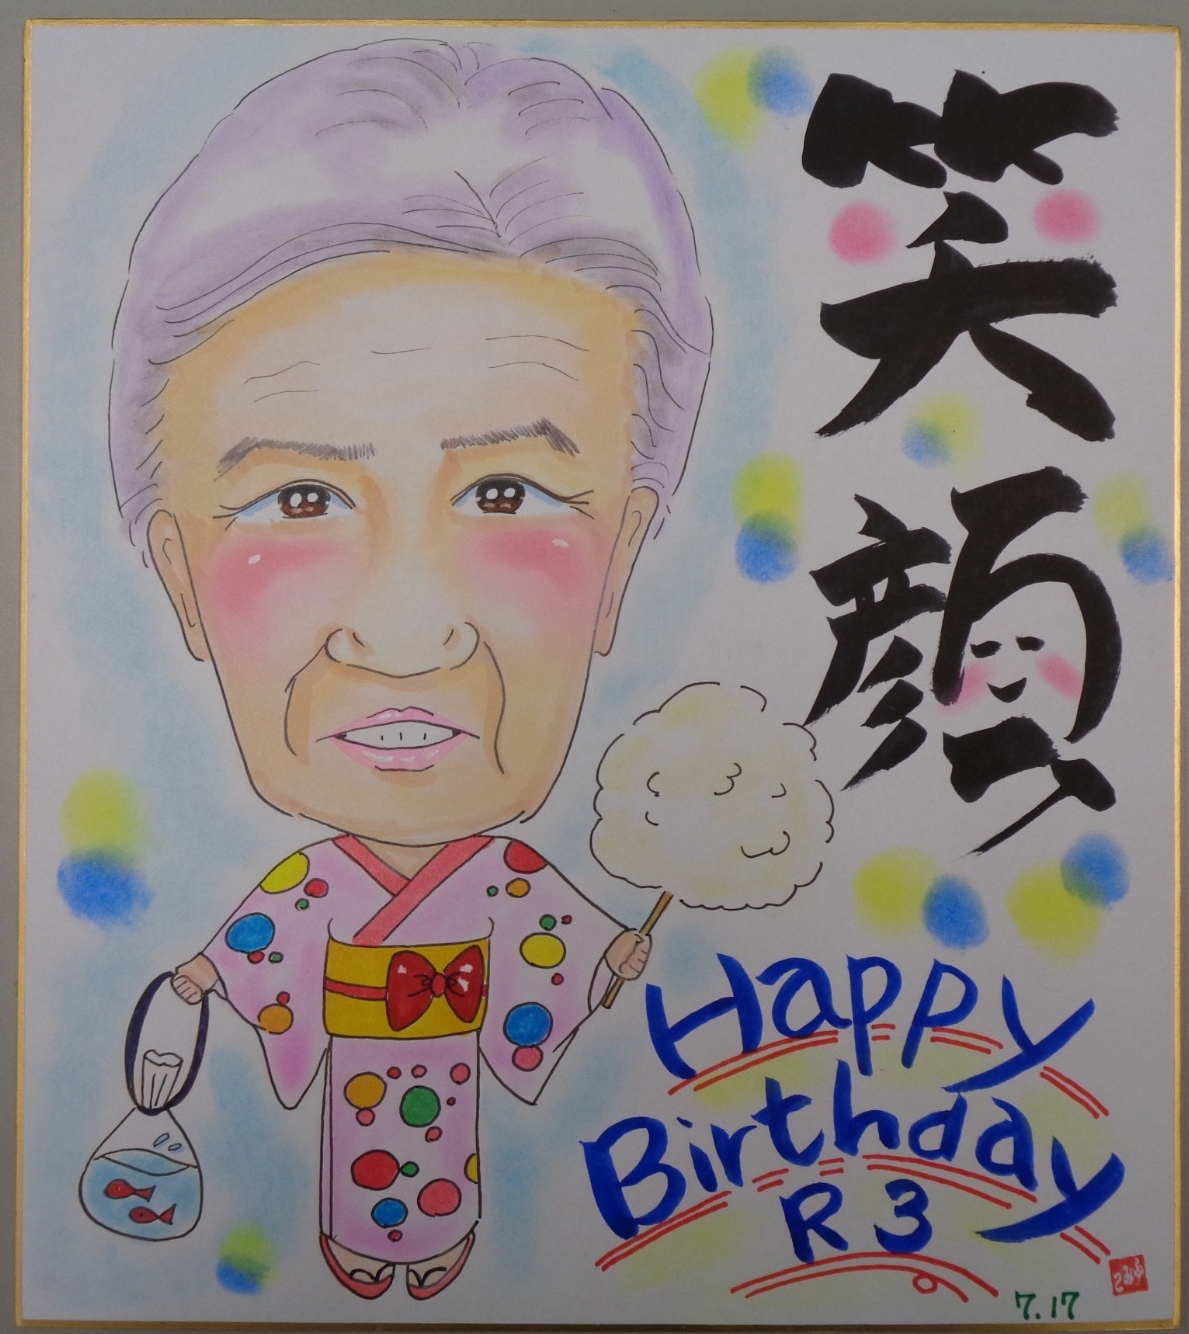 笑顔
Happy
Birthday
R3
7.17